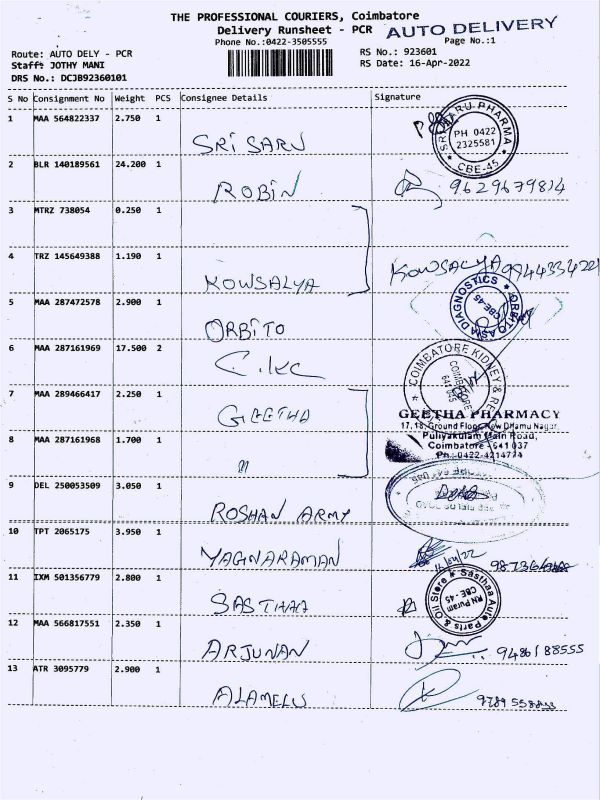 THE PROFESSIONAL COURIERS, Coimbatore
Delivery Runsheet - PCR AUTO DELIVERY
Phone No.:0422-3505555 Page No.:1
Route: AUTO DELY - PCR RS No.: 923601
Staff: JOTHY MANI RS Date: 16-Apr-2022
DRS No.: DCJB92360101
S No Consignment No Weight PCS Consignee Details Signature
1 MAA 564822337 2.750 1
SRI SARU
SRI SARU PHARMA
PH 0422
2325581
CBE-45
2 BLR 140189561 24.200 1
ROBIN 9629679814
3 MTRZ 738054 0.250 1
4 TRZ 145649388 1.190 1
KOWSALYA KOWSALYA 9944334221
5 MAA 287472578 2.900 1
ORBITO
ORBITO ASIA DIAGNOSTICS
CBE-45
6 MAA 287161969 17.500 2
COIMBATORE KIDNEY &
COIMBATORE
641 045
7 MAA 289466417 2.250 1
GEETHA
GEETHA PHARMACY
17, 18, Ground Floor, New DHamu Nagar,
Puliyakulam Main Road,
Coimbatore - 641 037
Ph: 0422-4214774
8 MAA 287161968 1.700 1
"
9 DEL 250053509 3.050 1
ROSHAN ARMY
10 TPT 2065175 3.950 1
YAGNARAMAN 16/04/22
11 IXM 501356779 2.800 1
SASTHAA
Sasthaa Auto Parts & Oil Store
RN Puram
CBE - 45
12 MAA 566817551 2.350 1
ARJUNAN 9486188555
13 ATR 3095779 2.900 1
ALAMELU